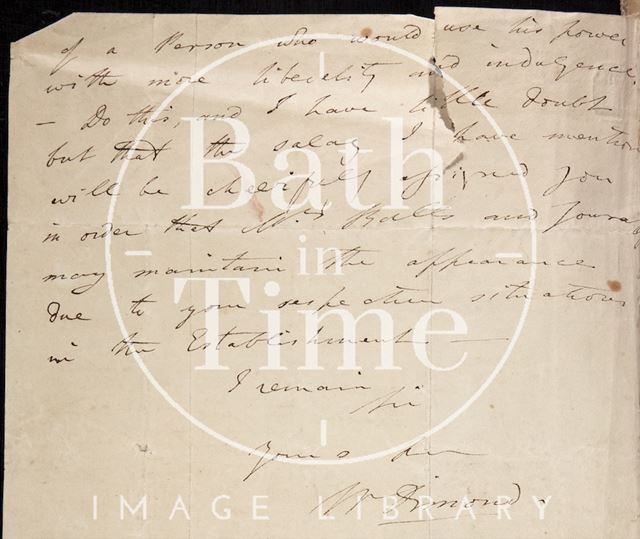 of a Person who would use his power
with more liberality and indulgence.
— Do this, and I have little doubt
but that the salary I have mention
will be cheerfully assigned you
in order that Mrs Balls and Yourself
may maintain the appearance
due to your respective situations
in the Establishment —
I remain
Sir
Yours
Wm Dimond
Bath
in
Time
IMAGE LIBRARY